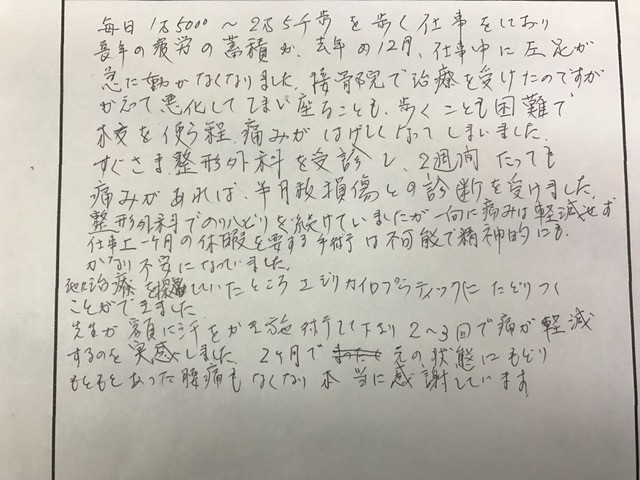 毎日1万5000～2万5千歩を歩く仕事をしており
長年の疲労の蓄積か、去年の12月、仕事中に左足が
急に動かなくなりました。接骨院で治療を受けたのですが
かえって悪化してしまい座ることも、歩くことも困難で
杖を使う程、痛みがはげしくなってしまいました。
すぐさま整形外科を受診し、2週間たっても
痛みがあれば、半月板損傷との診断を受けました。
整形外科でのリハビリを続けていましたが一向に痛みは軽減せず
仕事上一ヶ月の休暇を要する手術は不可能で精神的にも
かなり不安になっていました。
他に治療を探していたところエジリカイロプラティックにたどりつく
ことができました
先生が額に汗をかき施術して下さり2～3回で痛が軽減
するのを実感しました。2ヶ月で元の状態にもどり
もともとあった腰痛もなくなり本当に感謝しています。